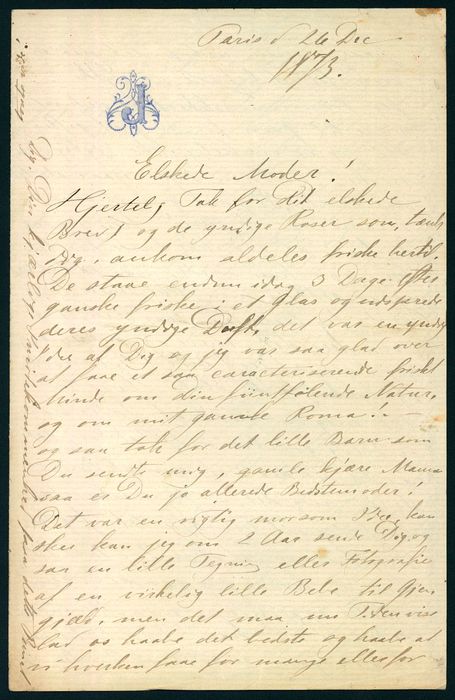 Paris d 26 Dec
1873.
J
Elskede Moder!
Hjertelig Tak for dit elskede
Brev, og de yndige Roser som, tænk
Dig, ankom aldeles friske hertil.
De staae endnu idag 3 Dage efter
ganske friske i et Glas og udsprede
deres yndige Duft, det var en yndig
Idee af Dig og jeg var saa glad over
at faae et saa caracteriserende friskt
Minde om din fiintfølende Natur,
og om mit gamle Roma! —
og saa tak for det lille Barn som
Du sendte mig, gamle kjære Mama
saa er Du jo allerede Bedstemoder!
Det var en rigtig morsom Idee, kan
skee kan jeg om 2 Aar sende Dig og
saa en lille Tegning eller Fotografie
af en virkelig lille Bebe til Gjen
gjæld, men det maa nu Tiden vise
lad os haabe det bedste og haabe at
vi hverken faae for mange eller for